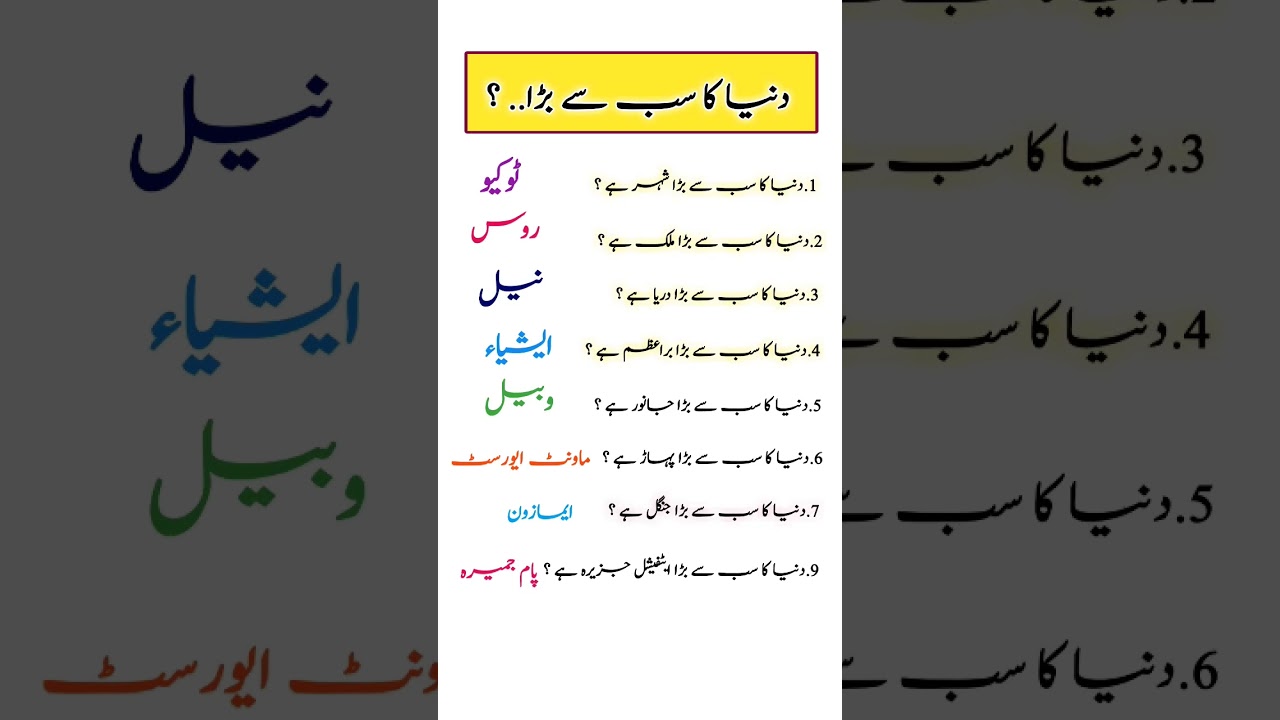 دنیا کا سب سے بڑا.. ؟
1.دنیا کا سب سے بڑا شہر ہے ؟ ٹوکیو
2.دنیا کا سب سے بڑا ملک ہے ؟ روس
3.دنیا کا سب سے بڑا دریا ہے ؟ نیل
4.دنیا کا سب سے بڑا براعظم ہے ؟ ایشیاء
5.دنیا کا سب سے بڑا جانور ہے ؟ وہیل
6.دنیا کا سب سے بڑا پہاڑ ہے ؟ ماونٹ ایورسٹ
7.دنیا کا سب سے بڑا جنگل ہے ؟ ایمازون
9.دنیا کا سب سے بڑا ایٹفیشل جزیرہ ہے ؟ پام جمیرہ
3.دنیا کا سب سے
نیل
4.دنیا کا سب سے
ایشیاء
5.دنیا کا سب سے
وبیل
6.دنیا کا سب سے
ونٹ ایورسٹ